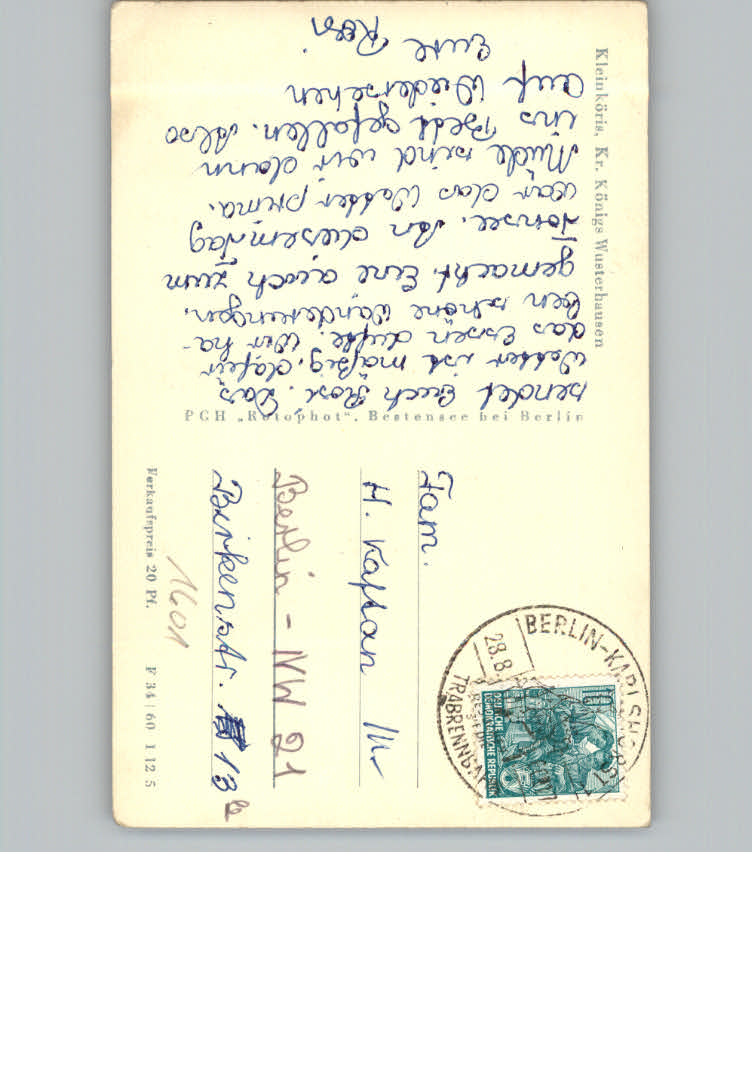 Kleinköris, Kr. Königs Wusterhausen
sendet Euch Rosi. Das
Wetter ist mäßig, dafür
das Essen dufte. Wir ha-
ben schöne Wanderungen
gemacht. Eine auch zum
Tonsee. An diesem Tag
war das Wetter prima.
Müde sind wir dann
ins Bett gefallen. Also
auf Wiedersehen
Eure Rosi
PGH „Rotophot“, Bestensee bei Berlin
BERLIN-KARLSHORST
28.8
TRABRENNBA
DEUTSCHE
DEMOKRATISCHE REPUBLIK
10
Fam.
H. Kaftan
Berlin - NW 21
Birkenstr. 13
1601
Verkaufspreis 20 Pf. F 34/60 1 12 5